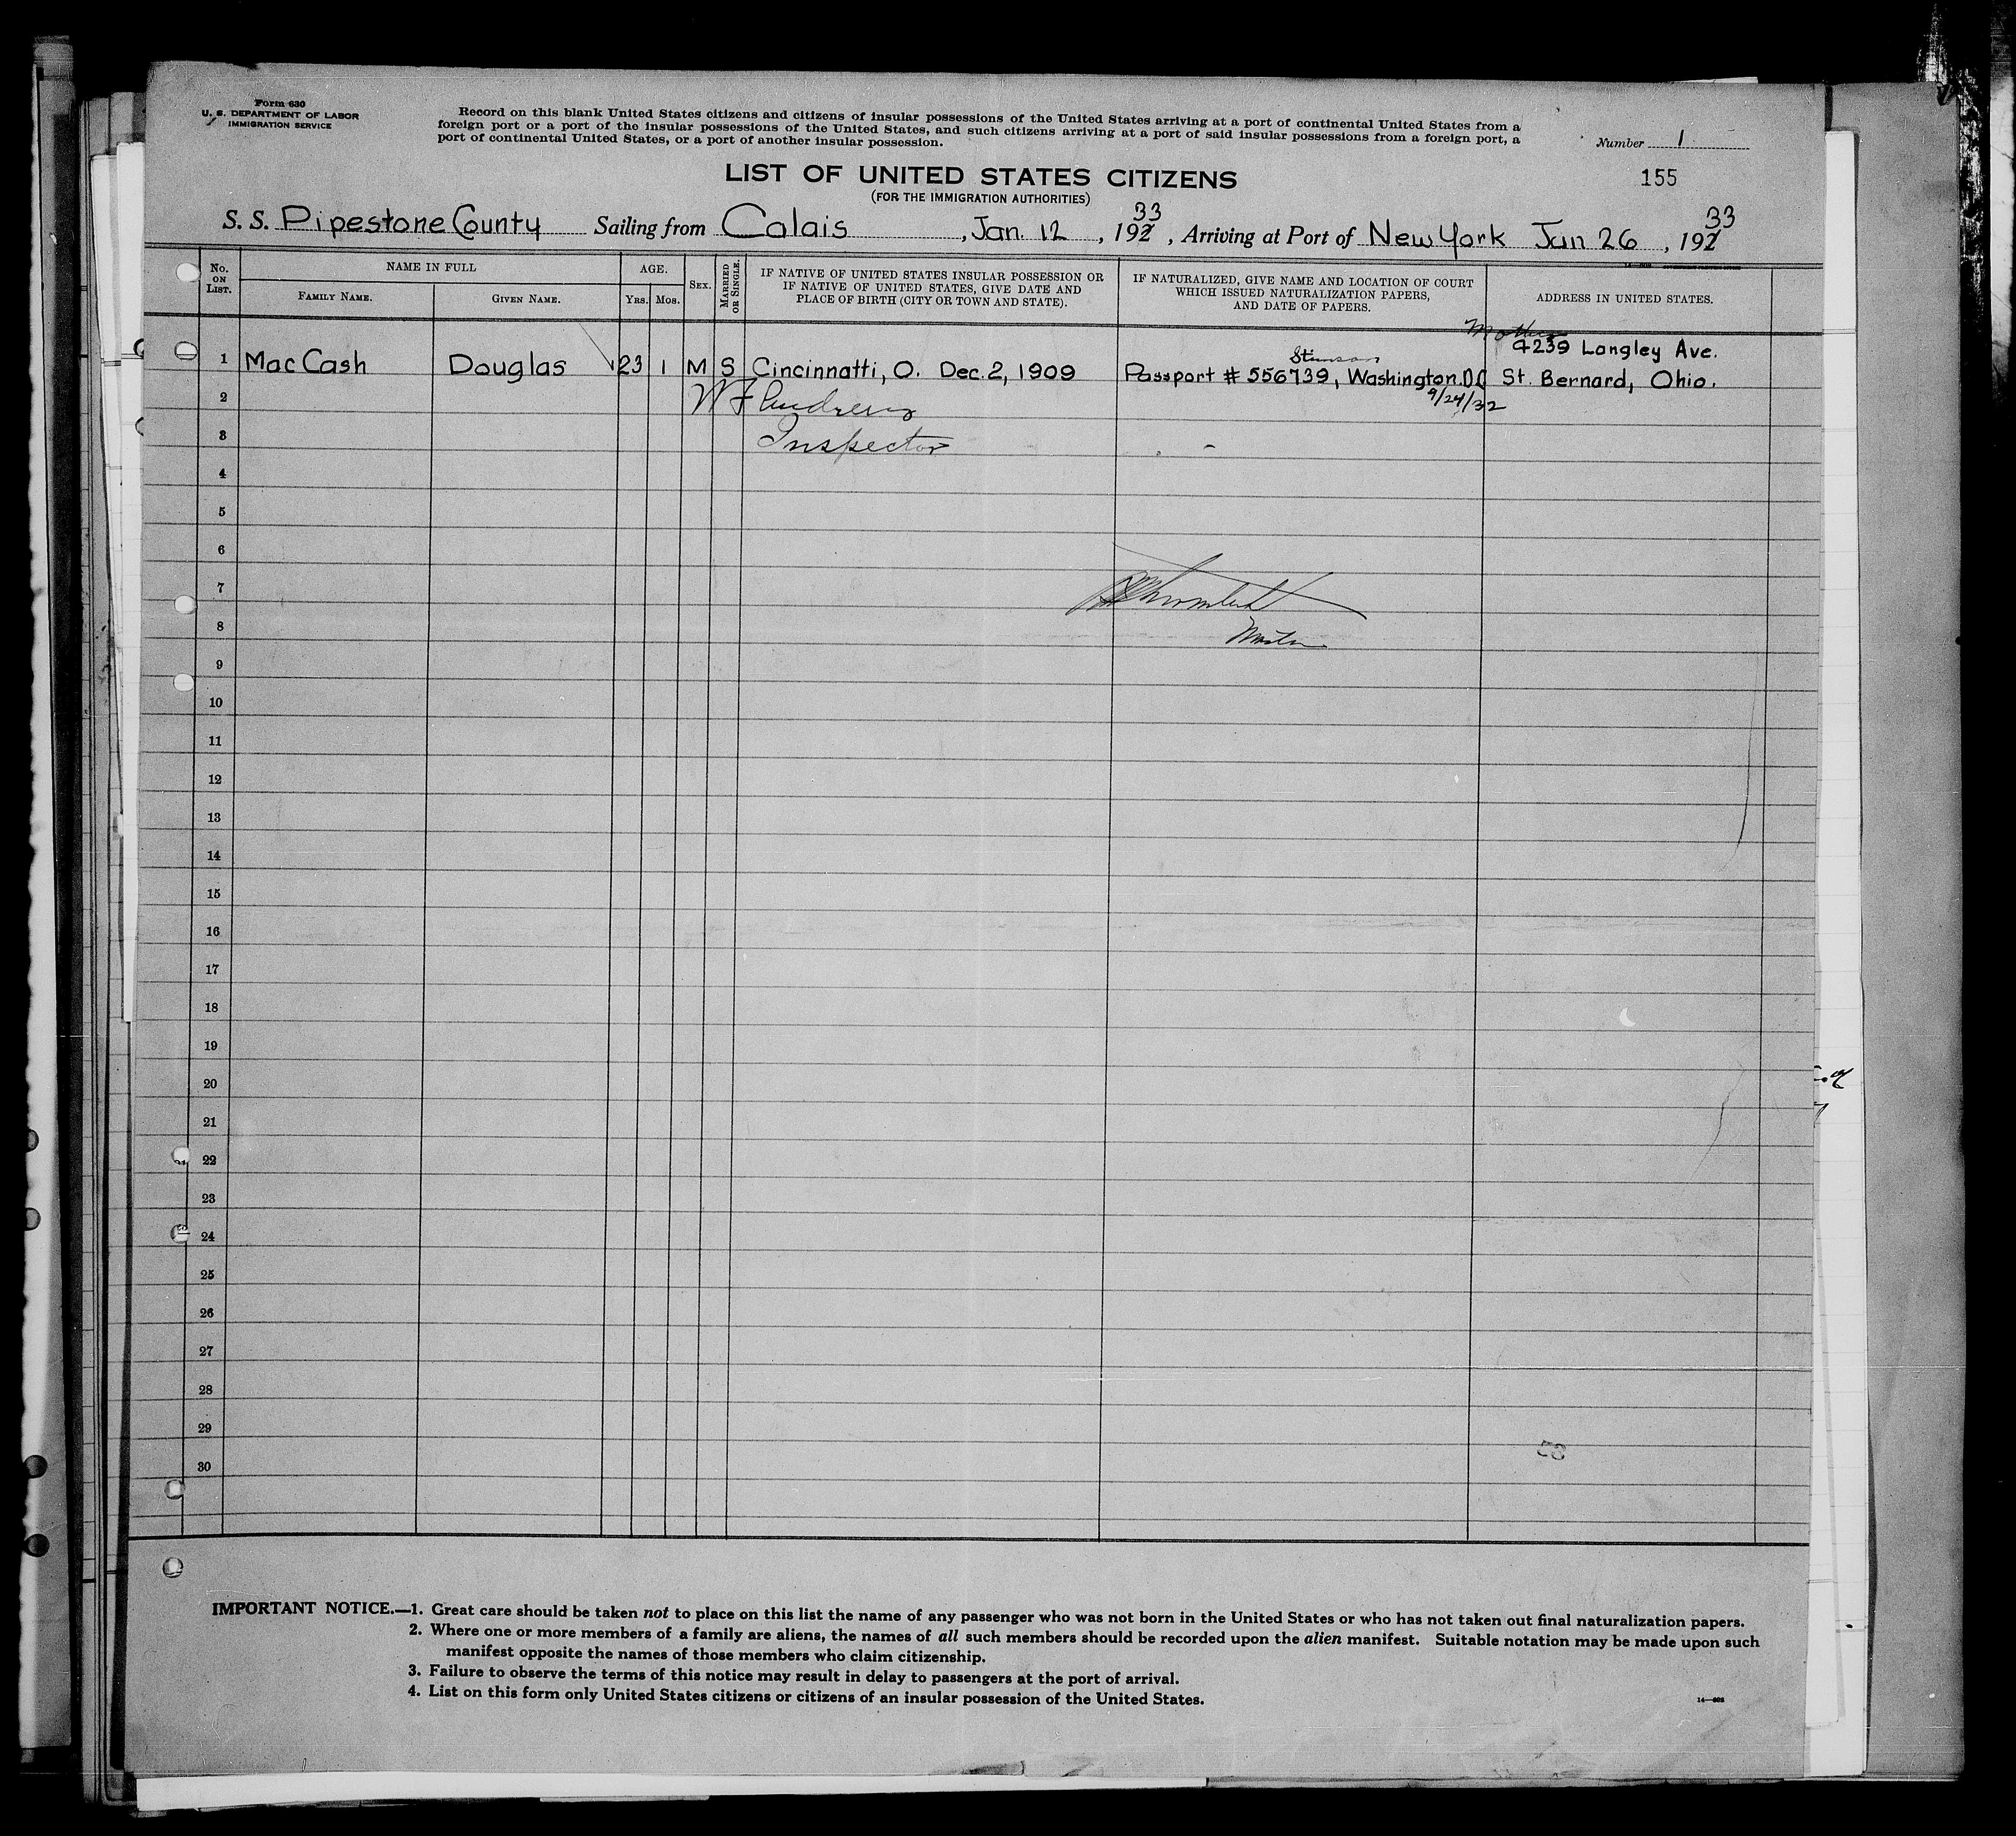 Form 630
U. S. DEPARTMENT OF LABOR
IMMIGRATION SERVICE
Record on this blank United States citizens and citizens of insular possessions of the United States arriving at a port of continental United States from a
foreign port or a port of the insular possessions of the United States, and such citizens arriving at a port of said insular possessions from a foreign port, a
port of continental United States, or a port of another insular possession.
Number 1
155
LIST OF UNITED STATES CITIZENS
(FOR THE IMMIGRATION AUTHORITIES)
S. S. Pipestone County Sailing from Calais, Jan. 12, 192 33, Arriving at Port of New York Jan 26, 192 33
No. ON LIST.
NAME IN FULL
FAMILY NAME.
GIVEN NAME.
AGE.
Yrs. Mos.
SEX.
MARRIED OR SINGLE.
IF NATIVE OF UNITED STATES INSULAR POSSESSION OR
IF NATIVE OF UNITED STATES, GIVE DATE AND
PLACE OF BIRTH (CITY OR TOWN AND STATE).
IF NATURALIZED, GIVE NAME AND LOCATION OF COURT
WHICH ISSUED NATURALIZATION PAPERS,
AND DATE OF PAPERS.
ADDRESS IN UNITED STATES.
Mother
Stimson
4239 Langley Ave.
1 Mac Cash Douglas 23 1 M S Cincinnatti, O. Dec. 2, 1909 Passport # 556739, Washington. D C St. Bernard, Ohio.
9/24/32
2 W F Andrews
3 Inspector
4
5
6
7
8 Master
9
10
11
12
13
14
15
16
17
18
19
20
21
22
23
24
25
26
27
28
29
30
IMPORTANT NOTICE.—1. Great care should be taken not to place on this list the name of any passenger who was not born in the United States or who has not taken out final naturalization papers.
2. Where one or more members of a family are aliens, the names of all such members should be recorded upon the alien manifest. Suitable notation may be made upon such
manifest opposite the names of those members who claim citizenship.
3. Failure to observe the terms of this notice may result in delay to passengers at the port of arrival.
4. List on this form only United States citizens or citizens of an insular possession of the United States.